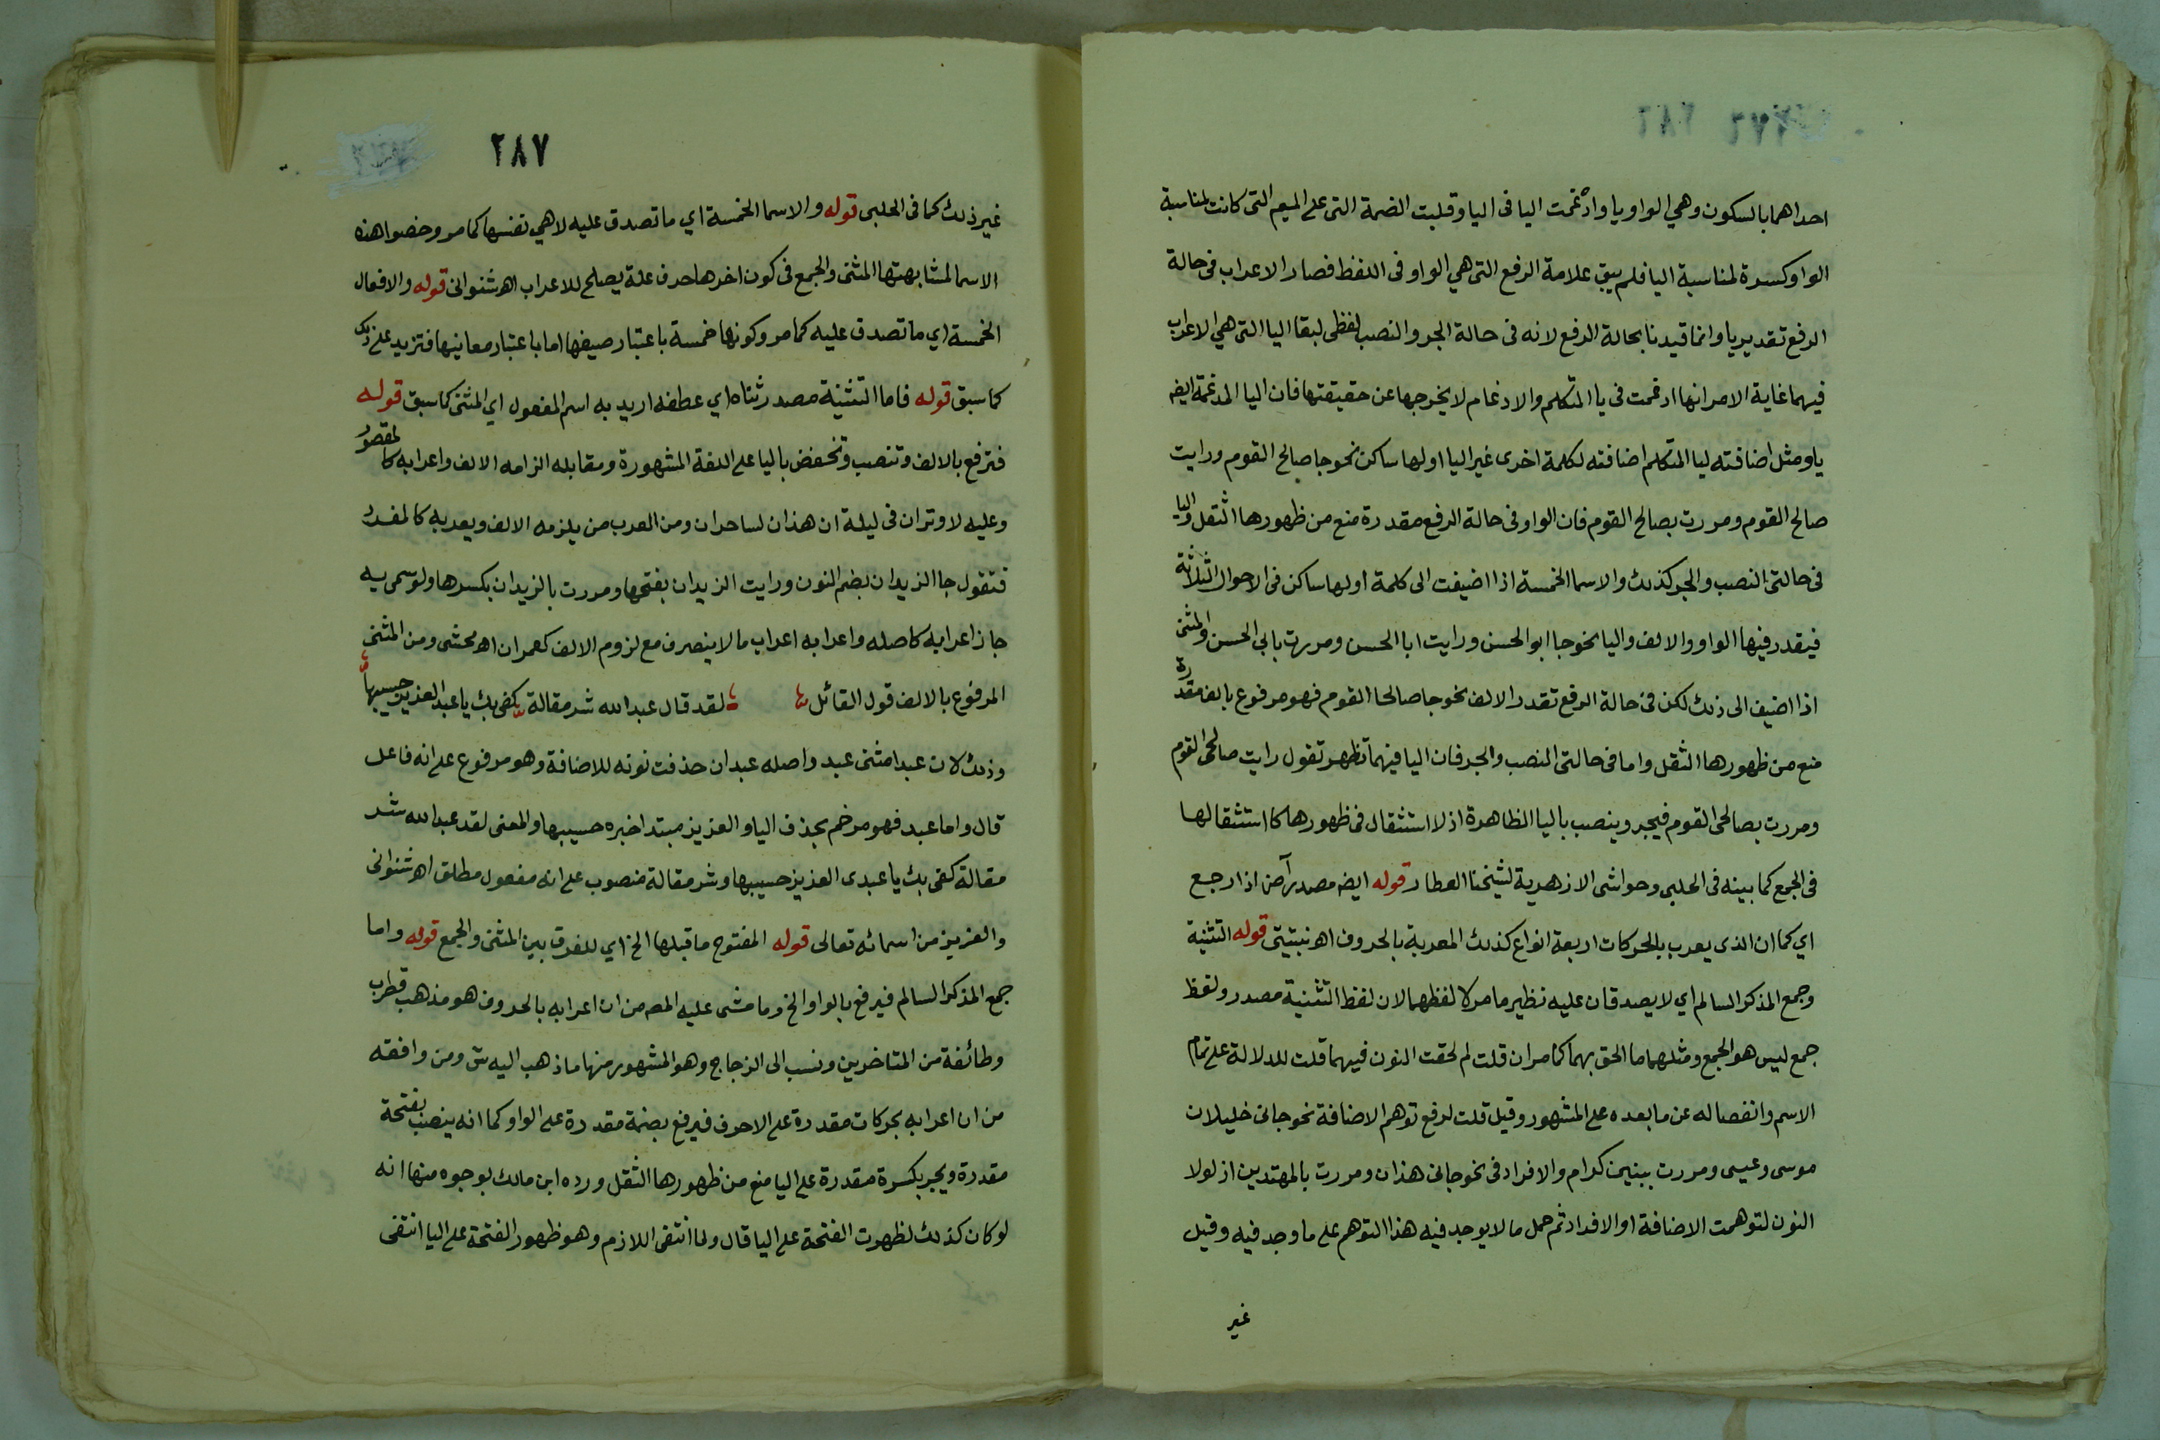 احداهما بالسكون وهي الواو يا وادغمت اليا فى اليا وقلبت الضمة التى على الميم التى كانت لمناسبة
الواو كسرة لمناسبة اليا فلم يبق علامة الرفع التى هي الواو فى اللفظ فصار الاعراب فى حالة
الرفع تقديريا وانما قيدنا بحالة الرفع لانه فى حالة الجر والنصب لفظى لبقا اليا التى هي الاعراب
فيهما غاية الامر انها ادغمت فى يا المتكلم والادغام لا يخرجها عن حقيقتها فان اليا المدغمة ايضا
يا ومثل اضافته ليا المتكلم اضافته لكلمة اخرى غير اليا اولها ساكن نحو جا صالح القوم ورايت
صالح القوم ومررت بصالح القوم فان الواو فى حالة الرفع مقدرة منع من ظهورها الثقل واليا
فى حالتى النصب والجر كذلك والاسما الخمسة اذا اضيفت الى كلمة اولها ساكن فى الاحوال الثلاثة
فيقدر فيها الواو والالف واليا نحو جا ابو الحسن ورايت ابا الحسن ومررت بابي الحسن والمثنى
اذا اضيف الى ذلك لكن فى حالة الرفع تقدر الالف نحو جا صالحا القوم فهو مرفوع بالف مقدرة
منع من ظهورها الثقل واما فى حالتى النصب والجر فان اليا فيهما تظهر تقول رايت صالحى القوم
ومررت بصالحى القوم فيجر وينصب باليا الظاهرة اذ لا استثقال فى ظهورها كاستثقالها
فى الجمع كما بينه فى الحلبى وحواشى الازهرية لشيخنا العطار قوله ايضا مصدر آض اذا رجع
اي كما ان الذى يعرب بالحركات اربعة انواع كذلك المعربة بالحروف اهـ نبتيتى قوله التثنية
وجمع المذكر السالم اي لا يصدقان عليه نظير ما مر لا لفظهما لان لفظ التثنية مصدر ولفظ
جمع ليس هو الجمع ومثلهما ما الحق بهما كما مر ان قلت لم لحقت النون فيهما قلت للدلالة على تمام
الاسم وانفصاله عن ما بعده على المشهور وقيل قلت لرفع توهم الاضافة نحو جانى خليلان
موسى وعيسى ومررت ببنين كرام والافراد فى نحو جانى هذان ومررت بالمهتدين اذ لولا
النون لتوهمت الاضافة او الافراد ثم حمل ما لا يوجد فيه هذا التوهم على ما وجد فيه وقيل
غير
٢٨٧
غير ذلك كما فى الحلبى قوله والاسما الخمسة اي ما تصدق عليه لا هي نفسها كما مر وخصوا هذه
الاسما لمشابهتها المثنى والجمع فى كون اخرها حرف علة يصلح للاعراب اهـ شنوانى قوله والافعال
الخمسة اي ما تصدق عليه كما مر وكونها خمسة باعتبار صيغها اما باعتبار معانيها فتزيد على ذلك
كما سبق قوله فاما التثنية مصدر ثناه اي عطفه اريد به اسم المفعول اي المثنى كما سبق قوله
فترفع بالالف وتنصب وتخفض باليا على اللغة المشهورة ومقابله الزامه الالف واعرابه كالمقصور
وعليه لا وتران فى ليلة ان هذان لساحران ومن العرب من يلزمه الالف ويعربه كالمفرد
فتقول جا الزيدان بضم النون ورايت الزيدان بفتحها ومررت بالزيدان بكسرها ولو سمى به
جاز اعرابه كاصله واعرابه اعراب ما لا ينصرف مع لزوم الالف كعمران اهـ محشى ومن المثنى
المرفوع بالالف قول القائل لقد قال عبدا لله شر مقالة كفى بك يا عبد العزيز حسيبها
وذلك لان عبدا مثنى عبد واصله عبدان حذفت نونه للاضافة وهو مرفوع على انه فاعل
قال واما عبد فهو مرخم بحذف اليا والعزيز مبتدا خبره حسيبها والمعنى لقد عبدا لله شر
مقالة كفى بك يا عبدى العزيز حسيبها وشر مقالة منصوب على انه مفعول مطلق اهـ شنوانى
والعزيز من اسمائه تعالى قوله المفتوح ما قبلها الخ اي للفرق بين المثنى والجمع قوله واما
جمع المذكر السالم فيرفع بالواو الخ وما مشى عليه المصـ من ان اعرابه بالحروف هو مذهب قطرب
وطائفة من المتاخرين ونسب الى الزجاج وهو المشهور منها ما ذهب اليه ش ومن وافقه
من ان اعرابه بحركات مقدرة على الاحرف فيرفع بضمة مقدرة على الواو كما انه ينصب بفتحة
مقدرة ويجر بكسرة مقدرة على اليا منع من ظهورها الثقل ورده ابن مالك بوجوه منها انه
لو كان كذلك لظهرت الفتحة على اليا قال ولما انتفى اللازم وهو ظهور الفتحة على اليا انتفى